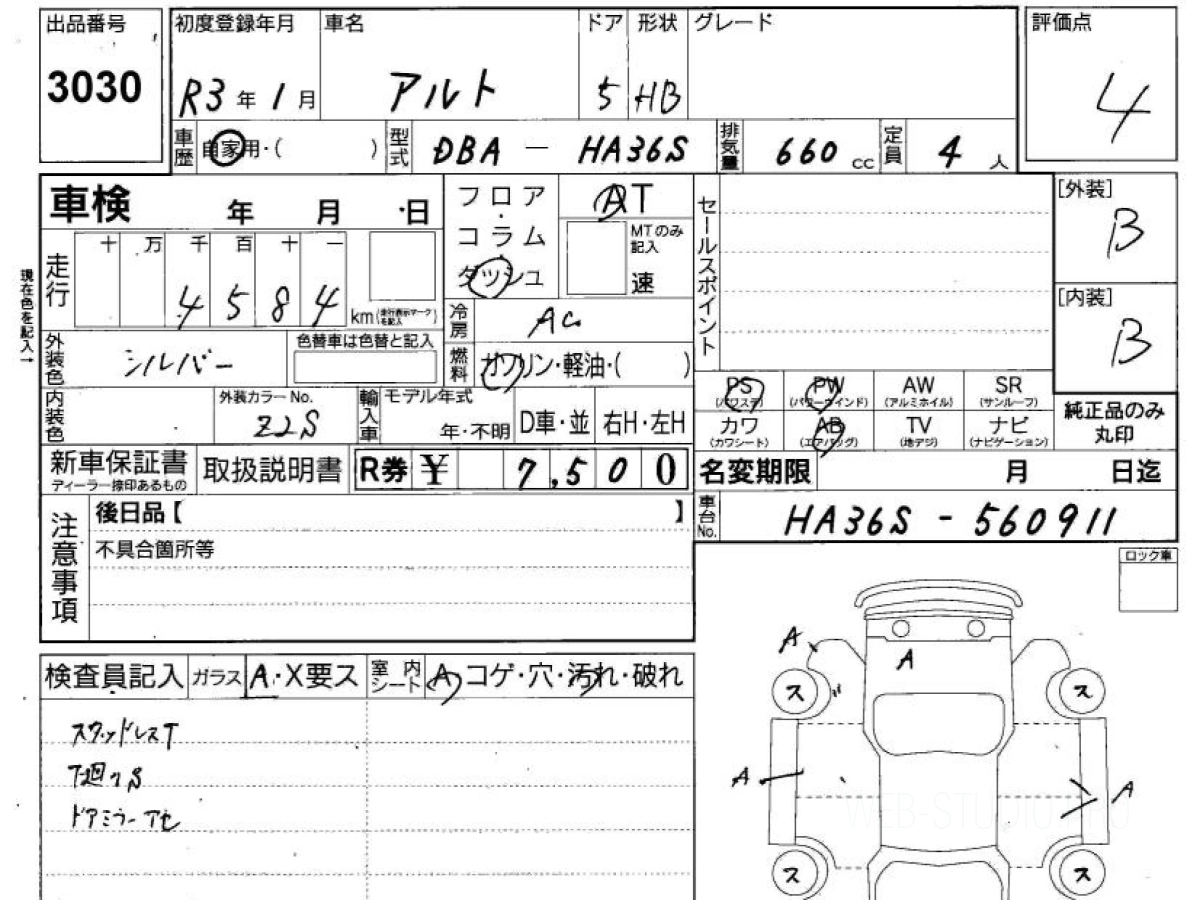 出品番号 初度登録年月 車名 ドア 形状 グレード 評価点
3030 R3年 1月 アルト 5 HB 4
車歴 自家用・( ) 型式 DBA - HA36S 排気量 660 cc 定員 4 人
車検 年 月 日
フロア・コラム・ダッシュ
AT
MTのみ記入
速
セールスポイント
[外装]
B
[内装]
B
現在色を記入→
走行 十 万 千 百 十 一
4 5 8 4 km (走行表示マークを記入)
冷房 AC
外装色 シルバー 色替車は色替と記入
燃料 ガソリン・軽油・( )
内装色 外装カラーNo. Z2S
輸入車 モデル年式 年・不明 D車・並 右H・左H
PS (パワステ) PW (パワーウインド) AW (アルミホイル) SR (サンルーフ)
カワ (カワシート) AB (エアバッグ) TV (地デジ) ナビ (ナビゲーション)
純正品のみ丸印
新車保証書 ディーラー捺印あるもの 取扱説明書 R券 ¥ 7,500
名変期限 月 日迄
車台No. HA36S - 560911
注意事項
後日品【 】
不具合箇所等
ロック車
検査員記入 ガラス A・X要ス 室内シート A・コゲ・穴・汚れ・破れ
スタッドレスT
T廻りS
ドアミラーアセ
A
A
ス ス
A A
ス ス
WEB-STUDIO